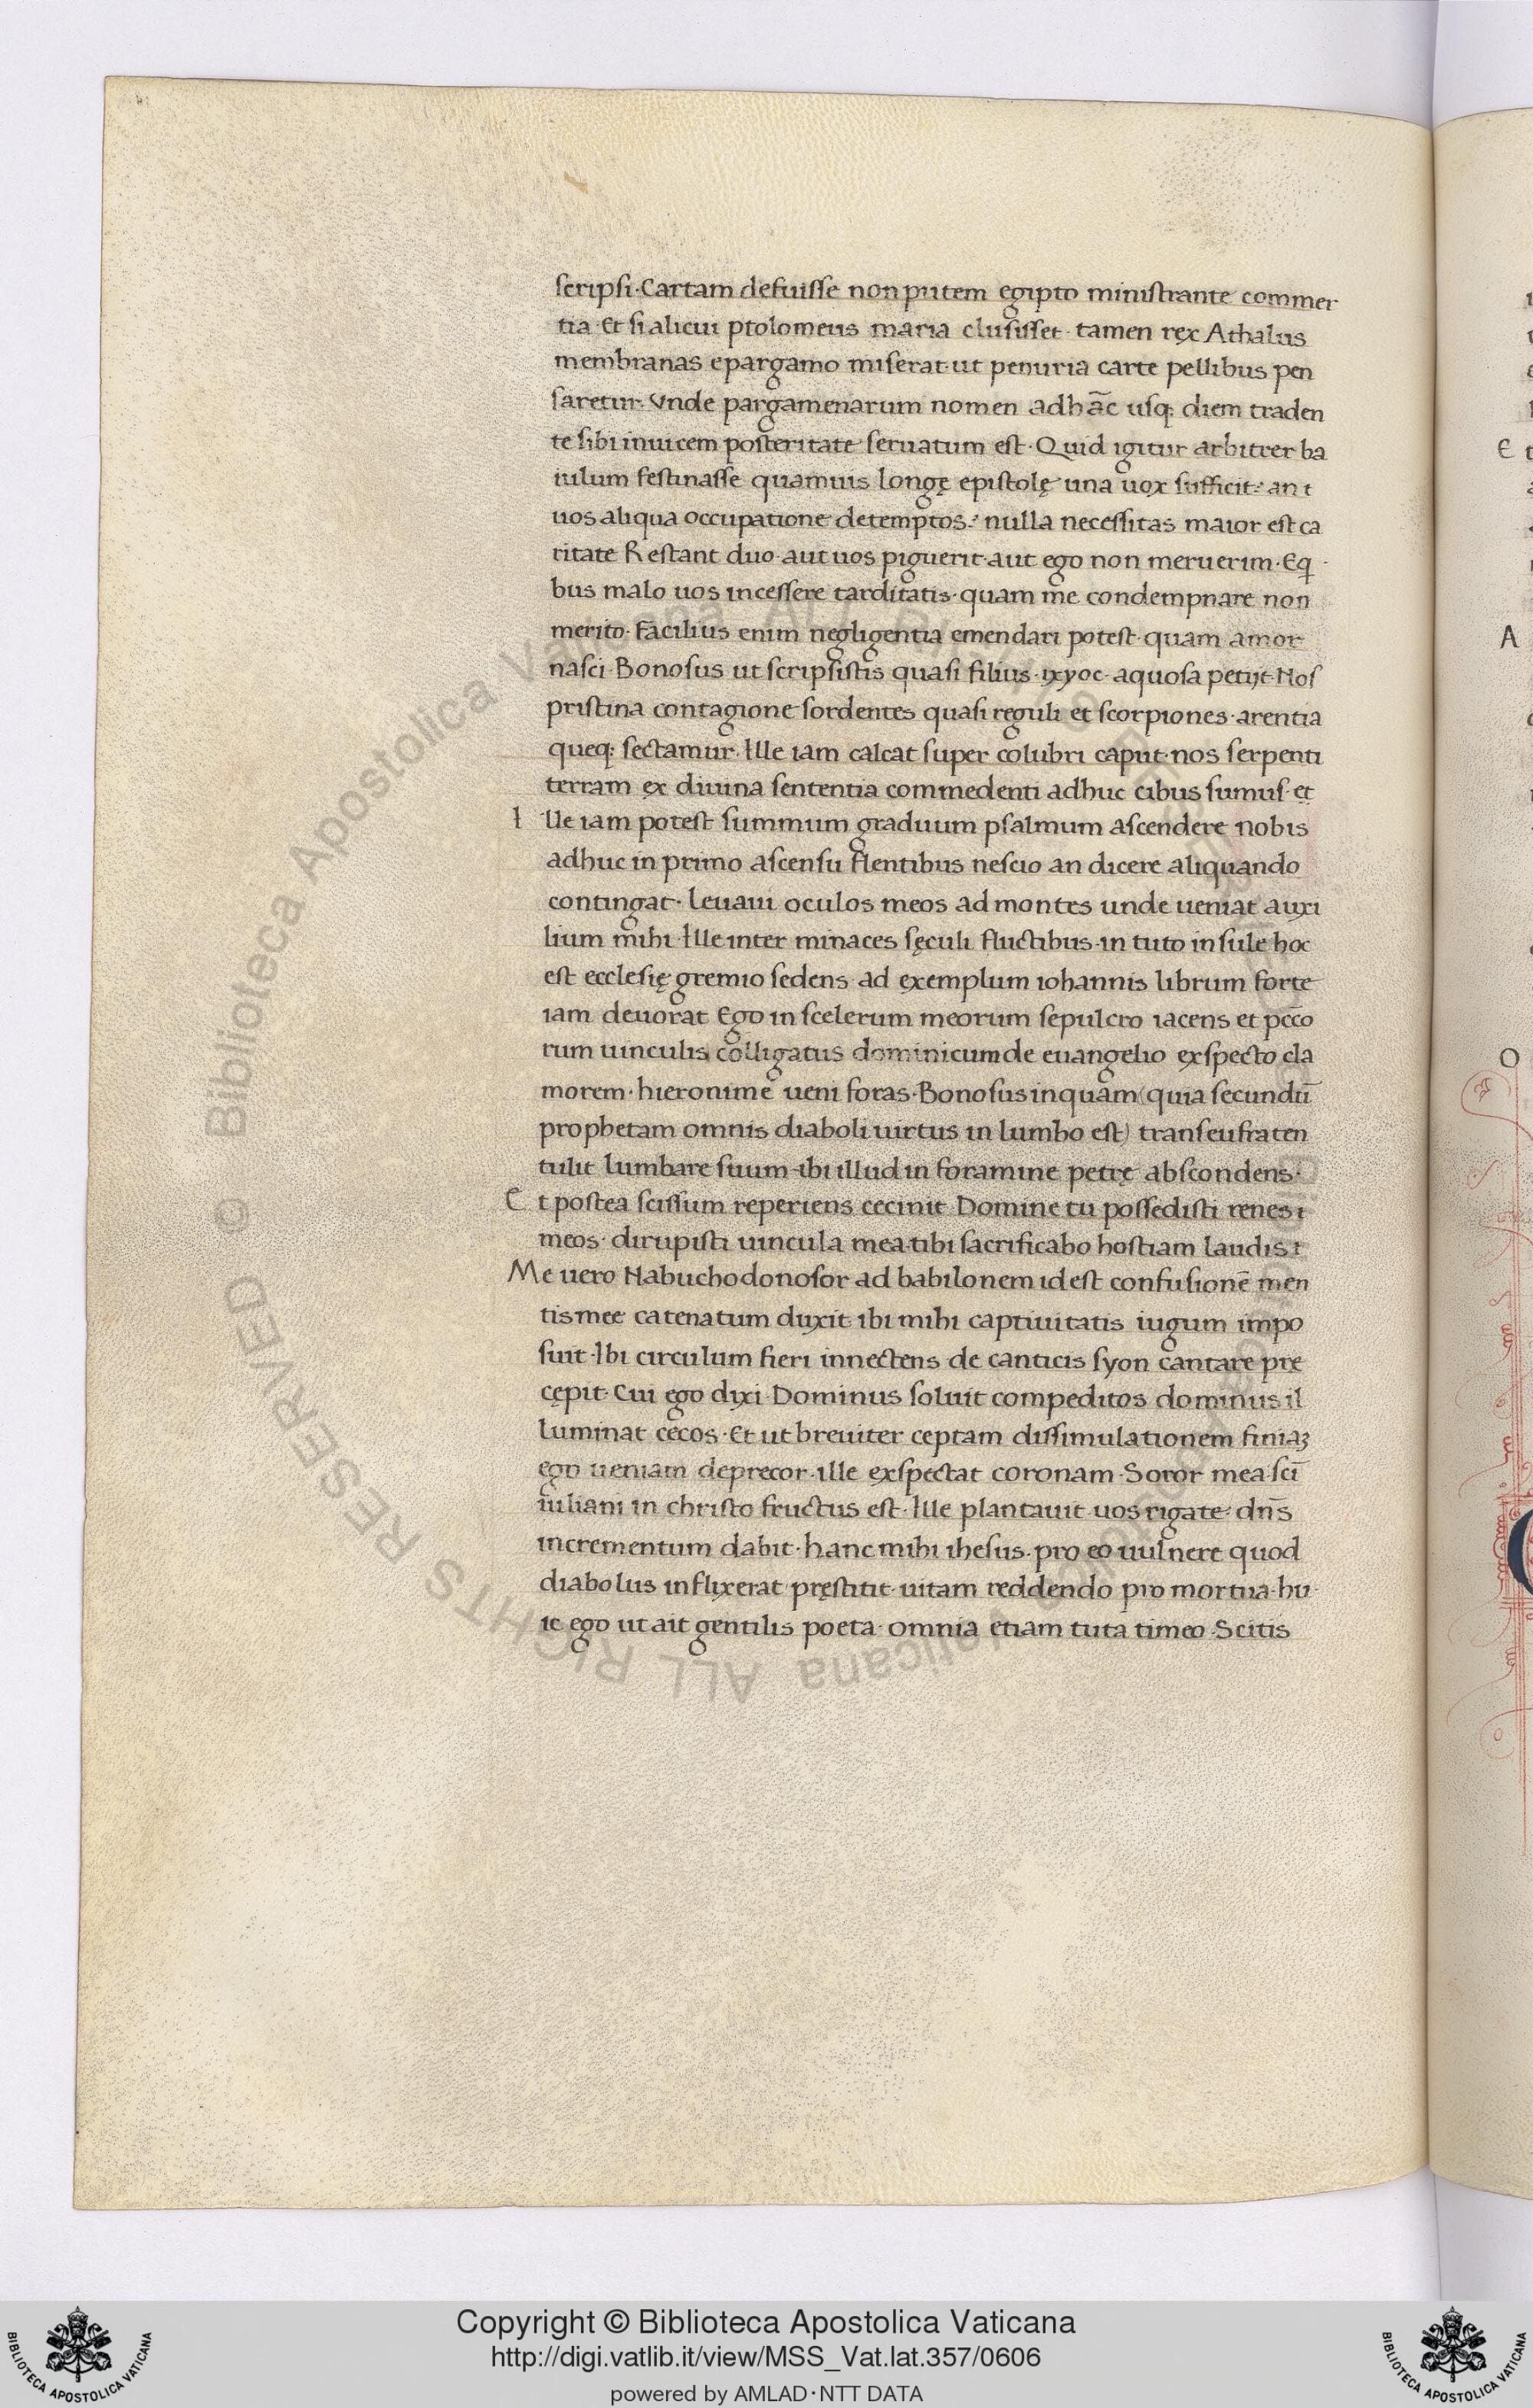 scripsi · Cartam defuisse non putem egipto ministrante commer
tia · Et si alicui ptolomeus maria clusisset · tamen rex Athalus
membranas epargamo miserat · ut penuria carte pellibus pen
saretur · Vnde pargamenarum nomen adhāc usq; diem traden
te sibi inuicem posteritate seruatum est · Quid igitur arbitrer ba
iulum festinasse quamuis longę epistolę una uox sufficit · an
uos aliqua occupatione detemptos · nulla necessitas maior est ca
ritate Restant duo · aut uos piguerit · aut ego non meruerim · Eq̄
bus malo uos incessere tarditatis · quam me condempnare non
merito · Facilius enim negligentia emendari potest · quam amor
nasci · Bonosus ut scripsistis quasi filius · ixyoc · aquosa petijt · Nos
pristina contagione sordentes quasi reguli et scorpiones · arentia
queq; sectamur · Ille iam calcat super colubri caput · nos serpenti
terram ex diuina sententia commedenti adhuc cibus sumus · et
Ille iam potest summum graduum psalmum ascendere nobis
adhuc in primo ascensu flentibus nescio an dicere aliquando
contingat · Leuaui oculos meos ad montes unde ueniat auxi
lium mihi · Ille inter minaces sęculi fluctibus · in tuto insule hoc
est ecclesię gremio sedens · ad exemplum iohannis librum forte
iam deuorat Ego in scelerum meorum sepulcro iacens et pc̄co
rum uinculis colligatus dominicum de euangelio exspecto cla
morem · hieronime ueni foras · Bonosus inquam (quia secundū
prophetam omnis diaboli uirtus in lumbo est) transeufraten
tulit lumbare suum · ibi illud in foramine petrę abscondens ·
Et postea scissum reperiens cecinit · Domine tu possedisti renes
meos · dirupisti uincula mea · tibi sacrificabo hostiam laudis
Me uero Nabuchodonosor ad babilonem id est confusionē men
tis mee catenatum duxit · ibi mihi captiuitatis iugum impo
suit · Ibi circulum fieri innectens de canticis syon cantare pre
cępit · Cui ego dixi · Dominus soluit compeditos dominus il
luminat cecos · Et ut breuiter ceptam dissimulationem finiaʒ
ego ueniam deprecor · ille exspectat coronam · Soror mea sc̄i
iuliani in christo fructus est · Ille plantauit uos rigate · dn̄s
incrementum dabit · hanc mihi ihesus · pro eo uulnere quod
diabolus inflixerat pręstitit · uitam reddendo pro mortua · hu
ic ego ut ait gentilis poeta · omnia etiam tuta timeo · Scitis
E
A
O
© Biblioteca Apostolica Vaticana ALL RIGHTS RESERVED
Copyright © Biblioteca Apostolica Vaticana
http://digi.vatlib.it/view/MSS_Vat.lat.357/0606
powered by AMLAD · NTT DATA
BIBLIOTECA APOSTOLICA VATICANA
BIBLIOTECA APOSTOLICA VATICANA